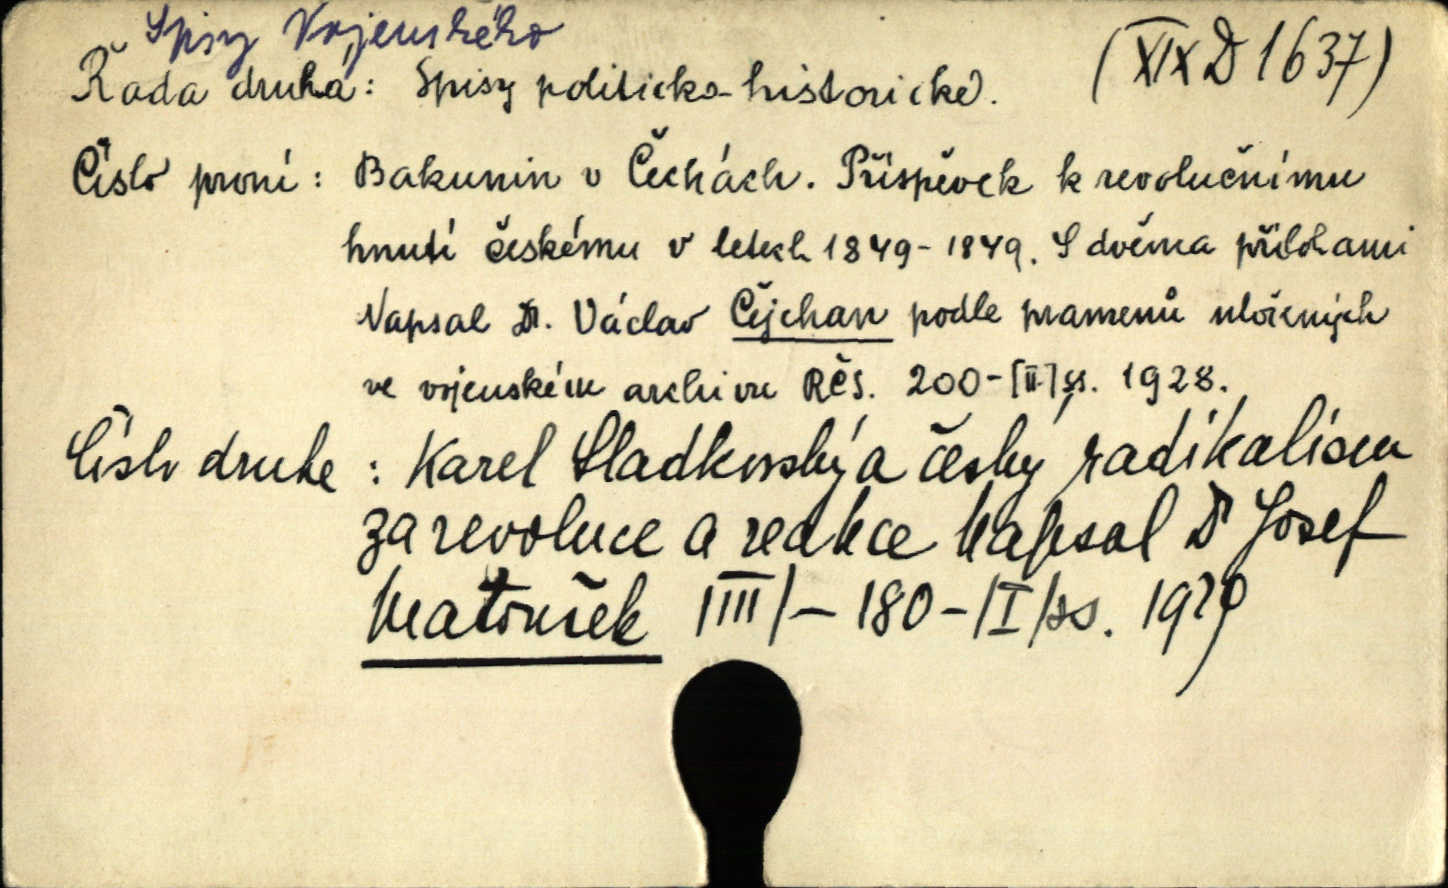 Spisy Vojenského
Řada druhá: Spisy politicko-historické. (XIX D 1637)
Číslo první: Bakunin v Čechách. Příspěvek k revolučnímu
hnutí českému v letech 1849-1849. S dvěma přílohami
Napsal Dr. Václav Čejchan podle pramenů uložených
ve vojenském archivu RČS. 200-[II] ss. 1928.
Číslo druhé: Karel Sladkovský a český radikalism
za revoluce a reakce Napsal Dr Josef
Matoušek |III|-180-|I|ss. 1929